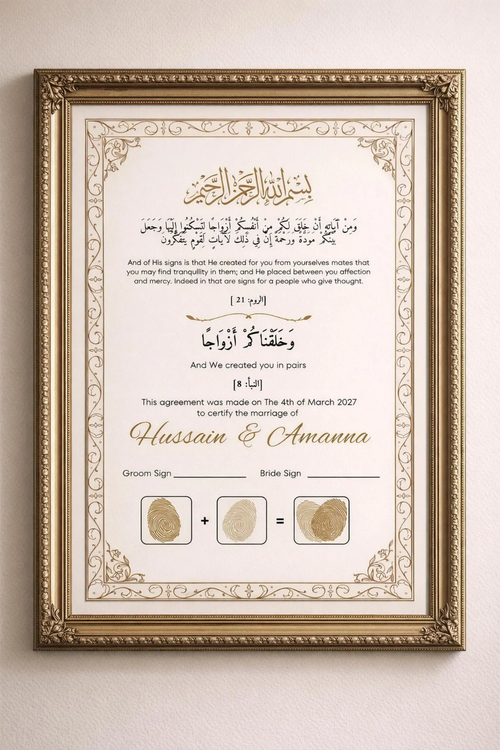 بسم الله الرحمن الرحيم
وَمِنْ آيَاتِهِ أَنْ خَلَقَ لَكُمْ مِنْ أَنْفُسِكُمْ أَزْوَاجًا لِتَسْكُنُوا إِلَيْهَا وَجَعَلَ
بَيْنَكُمْ مَوَدَّةً وَرَحْمَةً إِنَّ فِي ذَلِكَ لَآيَاتٍ لِقَوْمٍ يَتَفَكَّرُونَ
And of His signs is that He created for you from yourselves mates that
you may find tranquility in them; and He placed between you affection
and mercy. Indeed in that are signs for a people who give thought.
[الروم: 21 ]
وَخَلَقْنَاكُمْ أَزْوَاجًا
And We created you in pairs
[النبأ: 8]
This agreement was made on The 4th of March 2027
to certify the marriage of
Hussain & Amanna
Groom Sign ____________ Bride Sign ____________
+ =